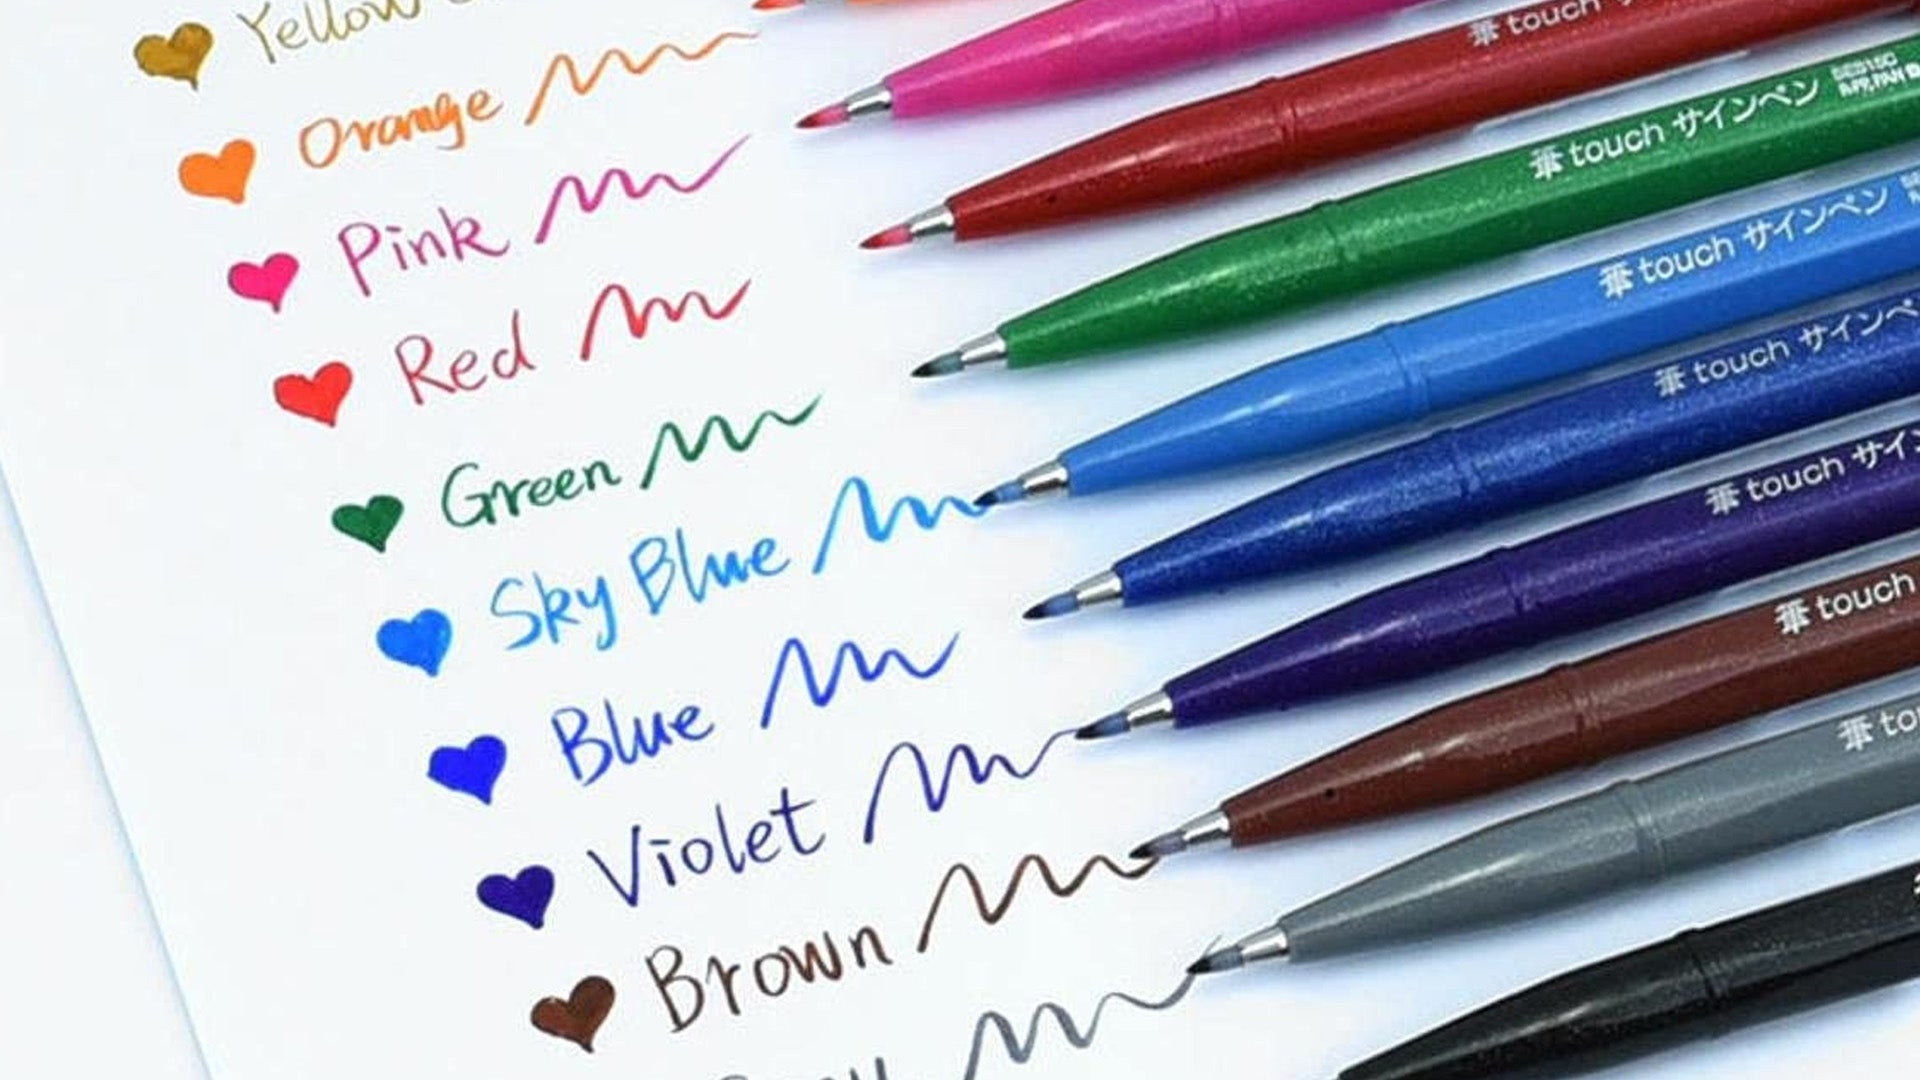 Yellow
Orange
Pink
Red
Green
Sky Blue
Blue
Violet
Brown
筆touch
筆touch サインペン
筆touch サインペン
筆touch サインペ
筆touch サイン
筆touch
筆to